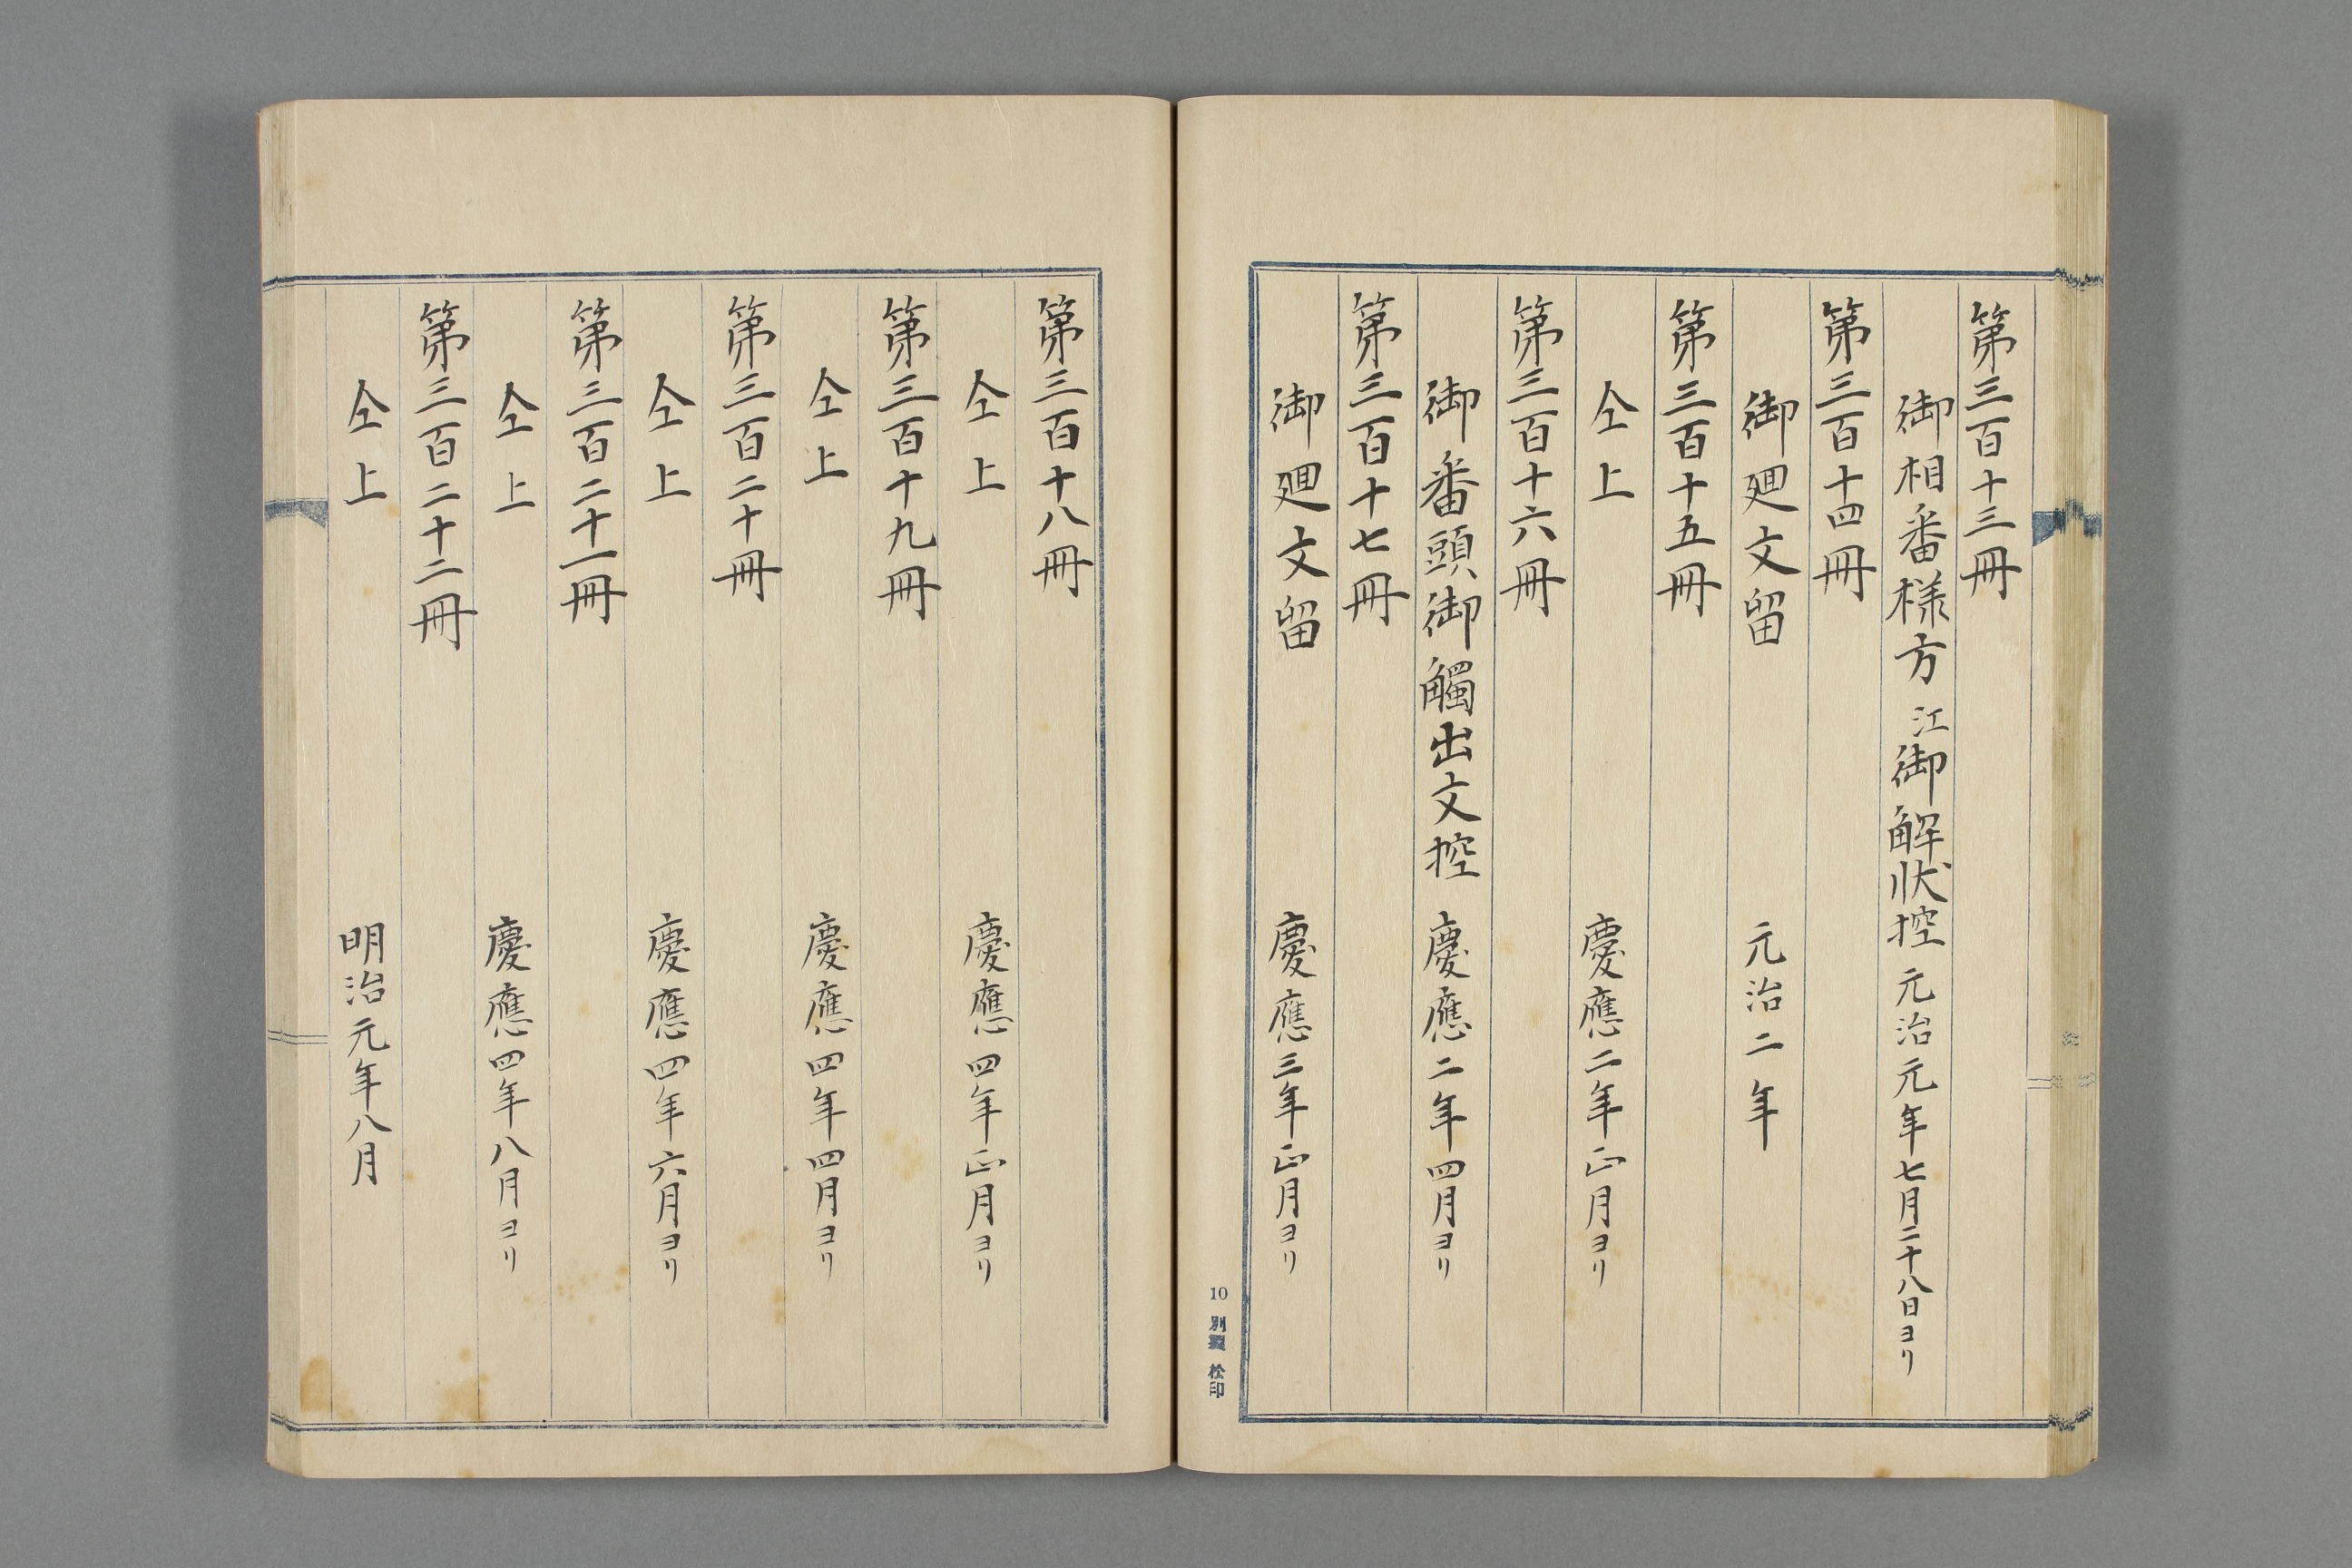 第三百十三冊
御相番様方江御解状控 元治元年七月二十八日ヨリ
第三百十四冊
御廻文留 元治二年
第三百十五冊
仝上 慶應二年正月ヨリ
第三百十六冊
御番頭御觸出文控 慶應二年四月ヨリ
第三百十七冊
御廻文留 慶應三年正月ヨリ
10 別製 松印
第三百十八冊
仝上 慶應四年正月ヨリ
第三百十九冊
仝上 慶應四年四月ヨリ
第三百二十冊
仝上 慶應四年六月ヨリ
第三百二十一冊
仝上 慶應四年八月ヨリ
第三百二十二冊
仝上 明治元年八月